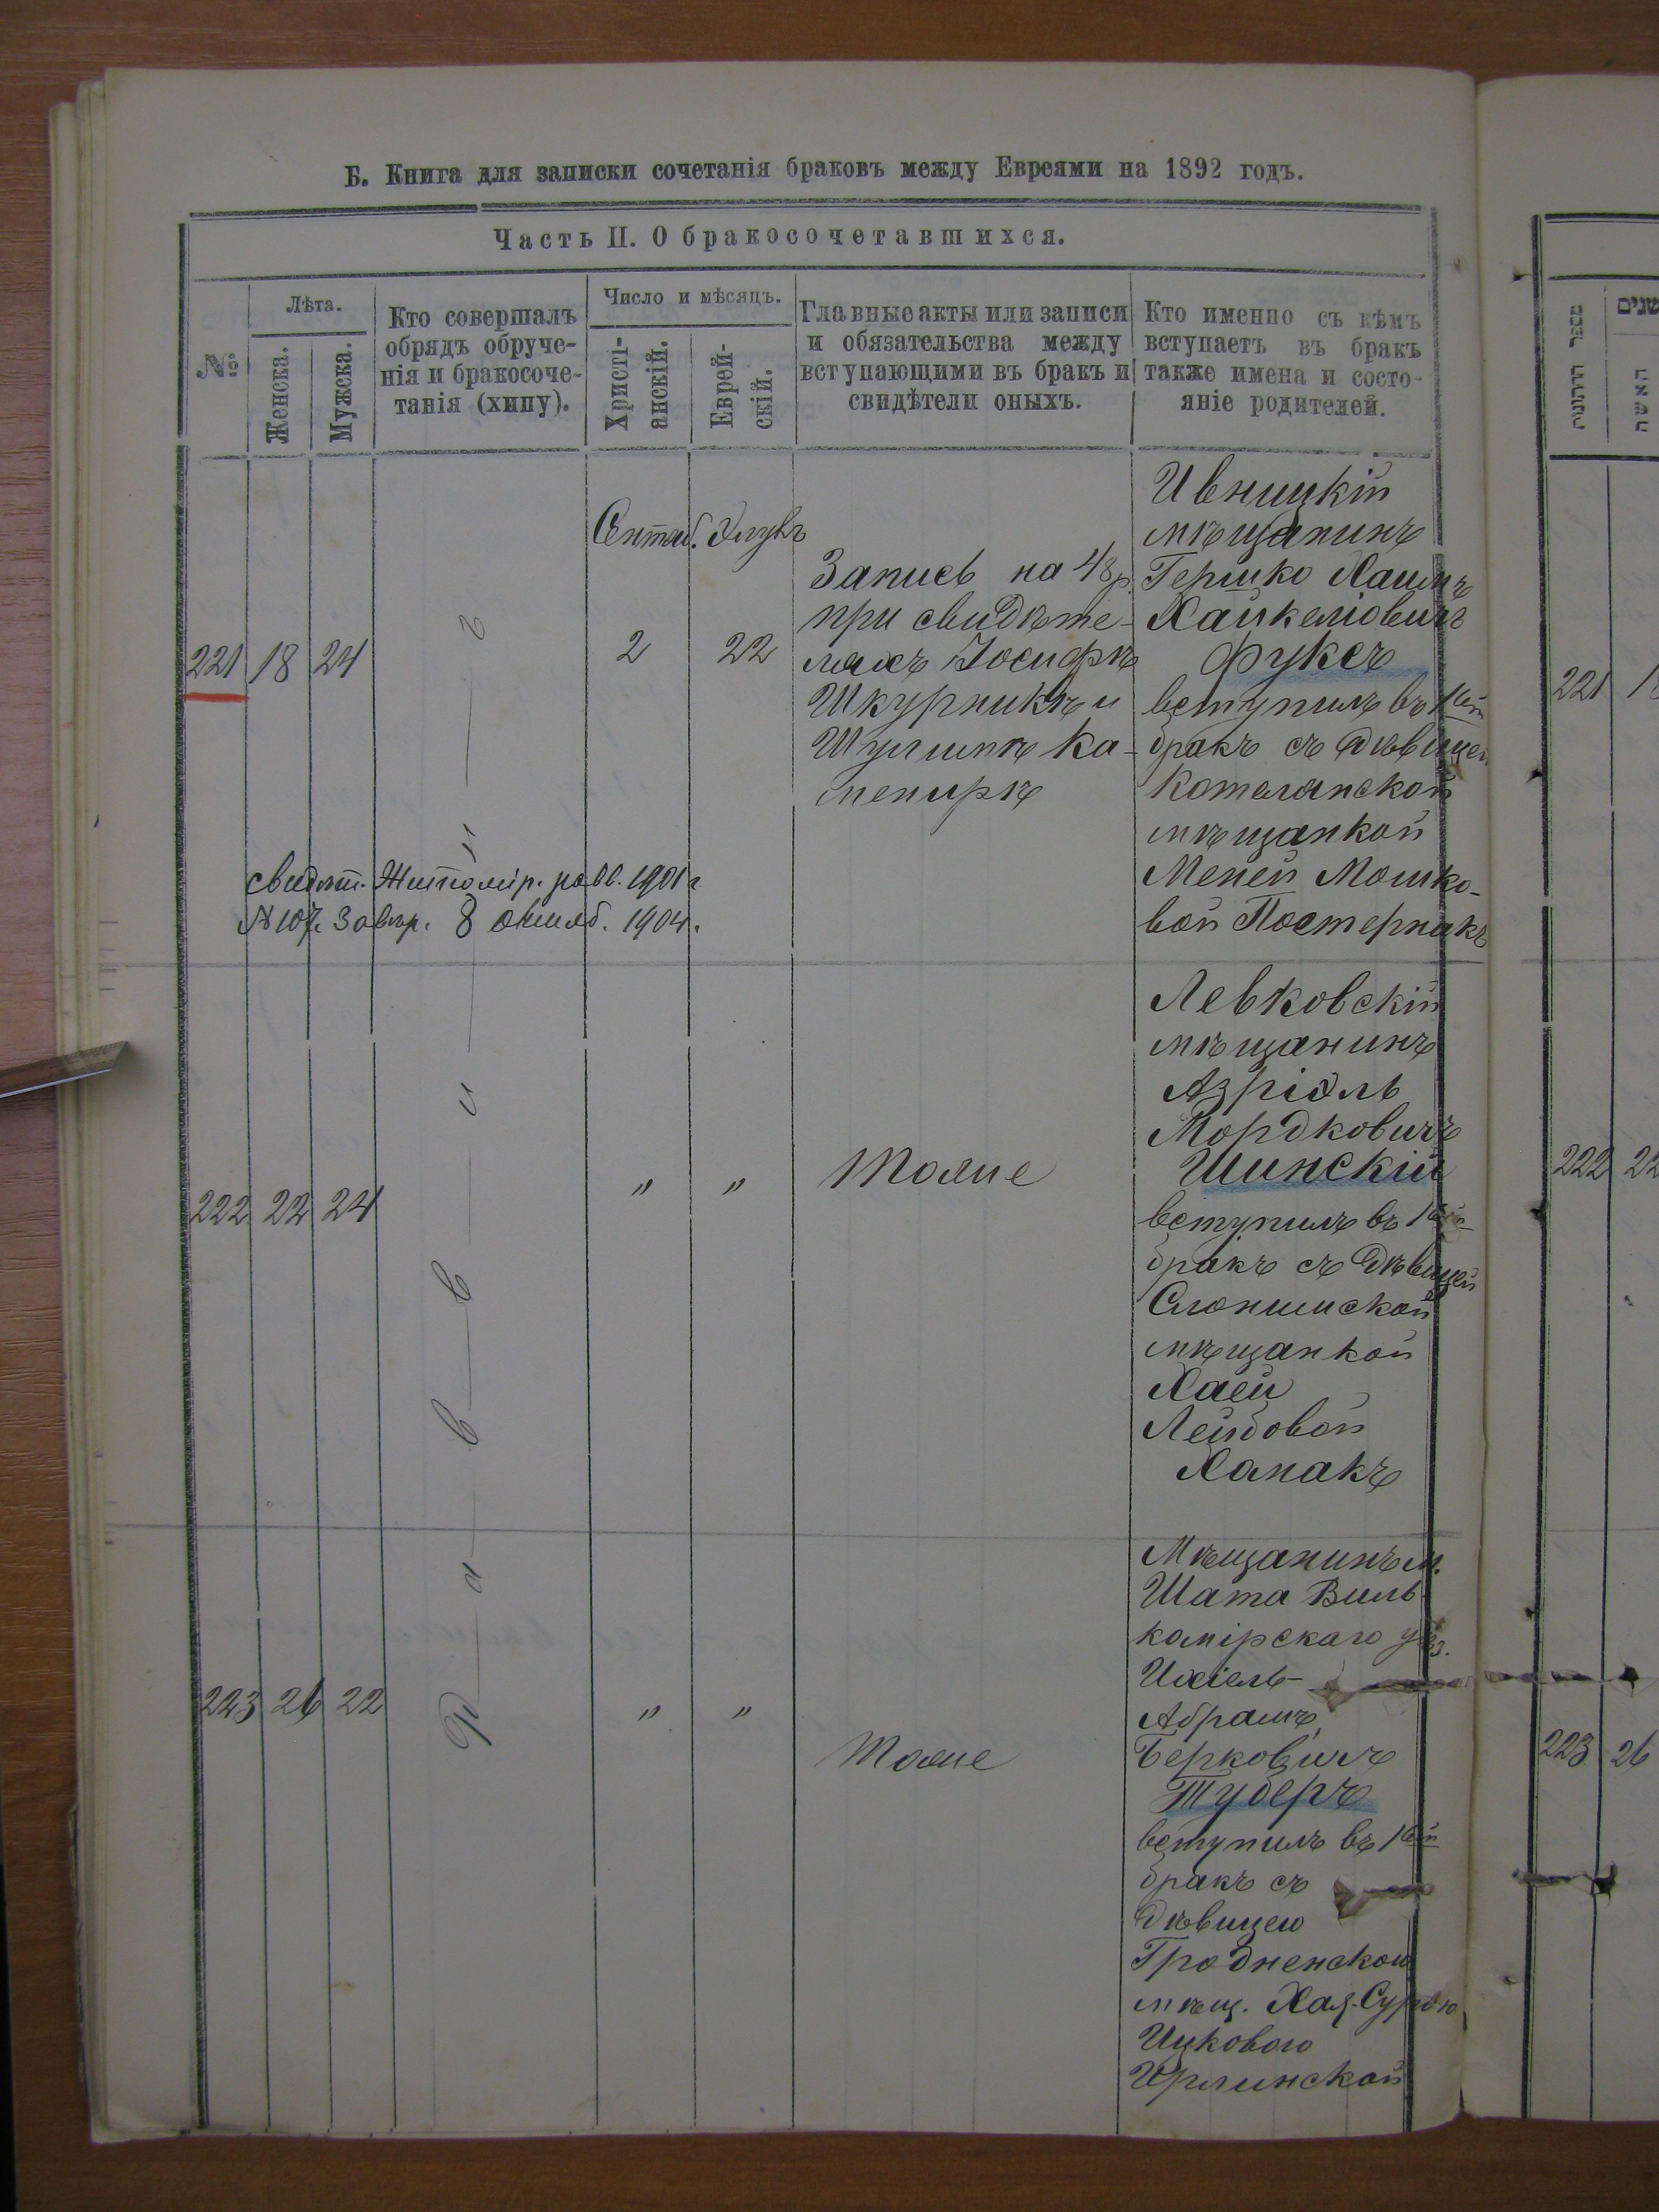 Б. Книга для записки сочетанія браковъ между Евреями на 1892 годъ.
Часть II. О бракосочетавшихся.
№
Лѣта.
Женска.
Мужска.
Кто совершалъ
обрядъ обруче-
нія и бракосоче-
танія (хипу).
Число и мѣсяцъ.
Христі-
анскій.
Еврей-
скій.
Главные акты или записи
и обязательства между
вступающими въ бракъ и
свидѣтели оныхъ.
Кто именно съ кѣмъ
вступаетъ въ бракъ
также имена и состо-
яніе родителей.
Р-а-в-в-и-н-ъ
221 18 24
Сентяб. Элулъ
2 22
Запись на 48 р.
при свидѣте-
ляхъ Іосифѣ
Шкурникѣ и
Шулимѣ Ка-
менирѣ
Ивницкій
мѣщанинъ
Гершко Хаимъ
Хайкеліовичъ
Фуксъ
вступилъ въ 1ый
бракъ съ дѣвицей
Котелянской
мѣщанкой
Меней Мошко-
вой Постернакъ
свидѣт. Житомір. равв. 1901 г.
№ 107. Завѣр. 8 октяб. 1904.
222 22 24
" "
Тоже
Левковскій
мѣщанинъ
Азріэль
Мордковичъ
Шинскій
вступилъ въ 1ый
бракъ съ дѣвицей
Слонимской
мѣщанкой
Хаей
Лейбовой
Ханакъ
223 26 22
" "
Тоже
Мѣщанинъ м.
Шата Виль-
комірскаго уѣз.
Ихіель-
Абрамъ
Берковичъ
Туберъ
вступилъ въ 1ый
бракъ съ
дѣвицею
Гродненской
мѣщ. Хая-Сурою
Ицковою
Ирлинской
מספר החתונות
שנים
האשה
221 18
222 22
223 26